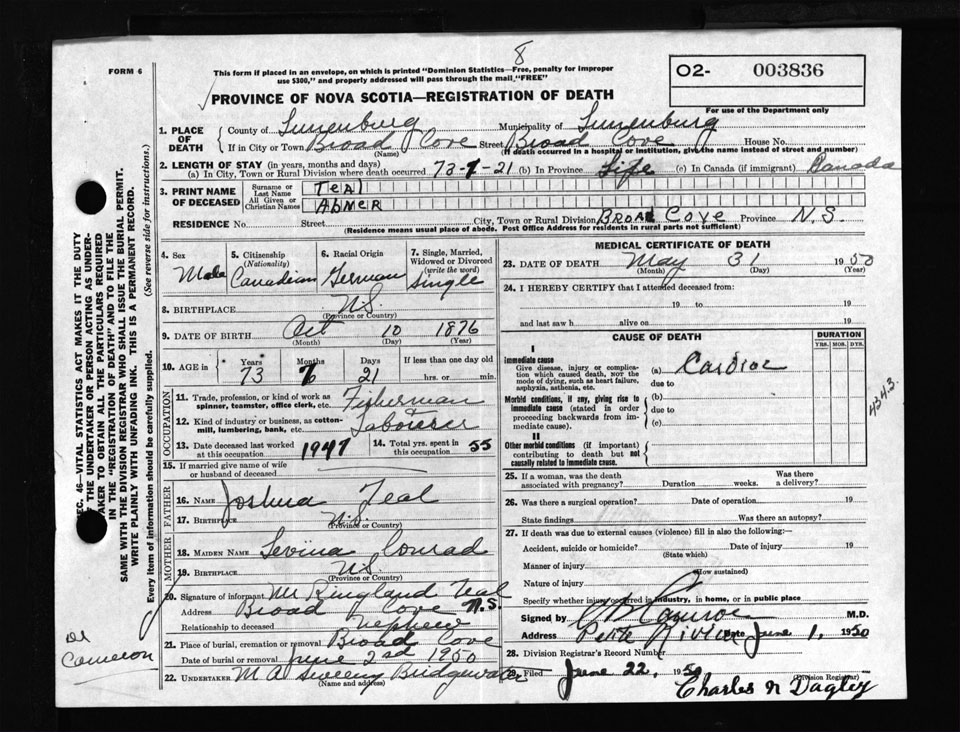 8
FORM 6
This form if placed in an envelope, on which is printed "Dominion Statistics—Free, penalty for improper
use $300," and properly addressed will pass through the mail, "FREE"
O2- 003836
For use of the Department only
PROVINCE OF NOVA SCOTIA—REGISTRATION OF DEATH
1. PLACE OF DEATH
County of Lunenburg Municipality of Lunenburg
If in City or Town Broad Cove Street Broad Cove House No.
(Name) (If death occurred in a hospital or institution, give the name instead of street and number)
2. LENGTH OF STAY (in years, months and days)
(a) In City, Town or Rural Division where death occurred 73-7-21 (b) In Province Life (c) In Canada (if immigrant) Canada
3. PRINT NAME OF DECEASED
Surname or Last Name Teal
All Given or Christian Names ABNER
RESIDENCE No. Street City, Town or Rural Division BROAD COVE Province N.S.
(Residence means usual place of abode. Post Office Address for residents in rural parts not sufficient)
4. Sex Male
5. Citizenship (Nationality) Canadian
6. Racial Origin German
7. Single, Married, Widowed or Divorced (write the word) Single
8. BIRTHPLACE N.S.
(Province or Country)
9. DATE OF BIRTH Oct 10 1876
(Month) (Day) (Year)
10. AGE in Years 73 Months 7 Days 21 If less than one day old
hrs. or min.
OCCUPATION
11. Trade, profession, or kind of work as spinner, teamster, office clerk, etc. Fisherman
12. Kind of industry or business, as cotton-mill, lumbering, bank, etc. & Labourer
13. Date deceased last worked at this occupation 1947
14. Total yrs. spent in this occupation 55
15. If married give name of wife or husband of deceased
FATHER
16. NAME Joshua Teal
17. BIRTHPLACE N.S.
(Province or Country)
MOTHER
18. MAIDEN NAME Levina Conrad
19. BIRTHPLACE N.S.
(Province or Country)
20. Signature of informant Mr Ringland Teal
Address Broad Cove N.S.
Relationship to deceased nephew
21. Place of burial, cremation or removal Broad Cove
Date of burial or removal June 2nd 1950
22. UNDERTAKER M A Sweeny Bridgewater
(Name and address)
MEDICAL CERTIFICATE OF DEATH
23. DATE OF DEATH May 31 1950
(Month) (Day) (Year)
24. I HEREBY CERTIFY that I attended deceased from:
19 to 19
and last saw h alive on 19
CAUSE OF DEATH
DURATION
YRS. MOS. DYS.
I
Immediate cause
Give disease, injury or complication which caused death, NOT the mode of dying, such as heart failure, asphyxia, asthenia, etc.
(a) Cardiac
due to
Morbid conditions, if any, giving rise to immediate cause (stated in order proceeding backwards from immediate cause).
(b)
due to
(c)
II
Other morbid conditions (if important) contributing to death but not causally related to immediate cause.
4343.
25. If a woman, was the death associated with pregnancy? Duration weeks. Was there a delivery?
26. Was there a surgical operation? Date of operation 19
State findings Was there an autopsy?
27. If death was due to external causes (violence) fill in also the following:—
Accident, suicide or homicide? Date of injury 19
(State which)
Manner of injury
(How sustained)
Nature of injury
Specify whether injury occurred in industry, in home, or in public place
Signed by M.D.
Address Petite Riviere Date June 1, 1950
28. Division Registrar's Record Number
Filed June 22, 1950
Charles N Dagley
(Division Registrar)
Dr
Cameron
SEC. 46—VITAL STATISTICS ACT MAKES IT THE DUTY
OF THE UNDERTAKER OR PERSON ACTING AS UNDER-
TAKER TO OBTAIN ALL THE PARTICULARS REQUIRED
IN THE "REGISTRATION OF DEATH" AND TO FILE THE
SAME WITH THE DIVISION REGISTRAR WHO SHALL ISSUE THE BURIAL PERMIT.
WRITE PLAINLY WITH UNFADING INK. THIS IS A PERMANENT RECORD.
Every item of information should be carefully supplied. (See reverse side for instructions.)